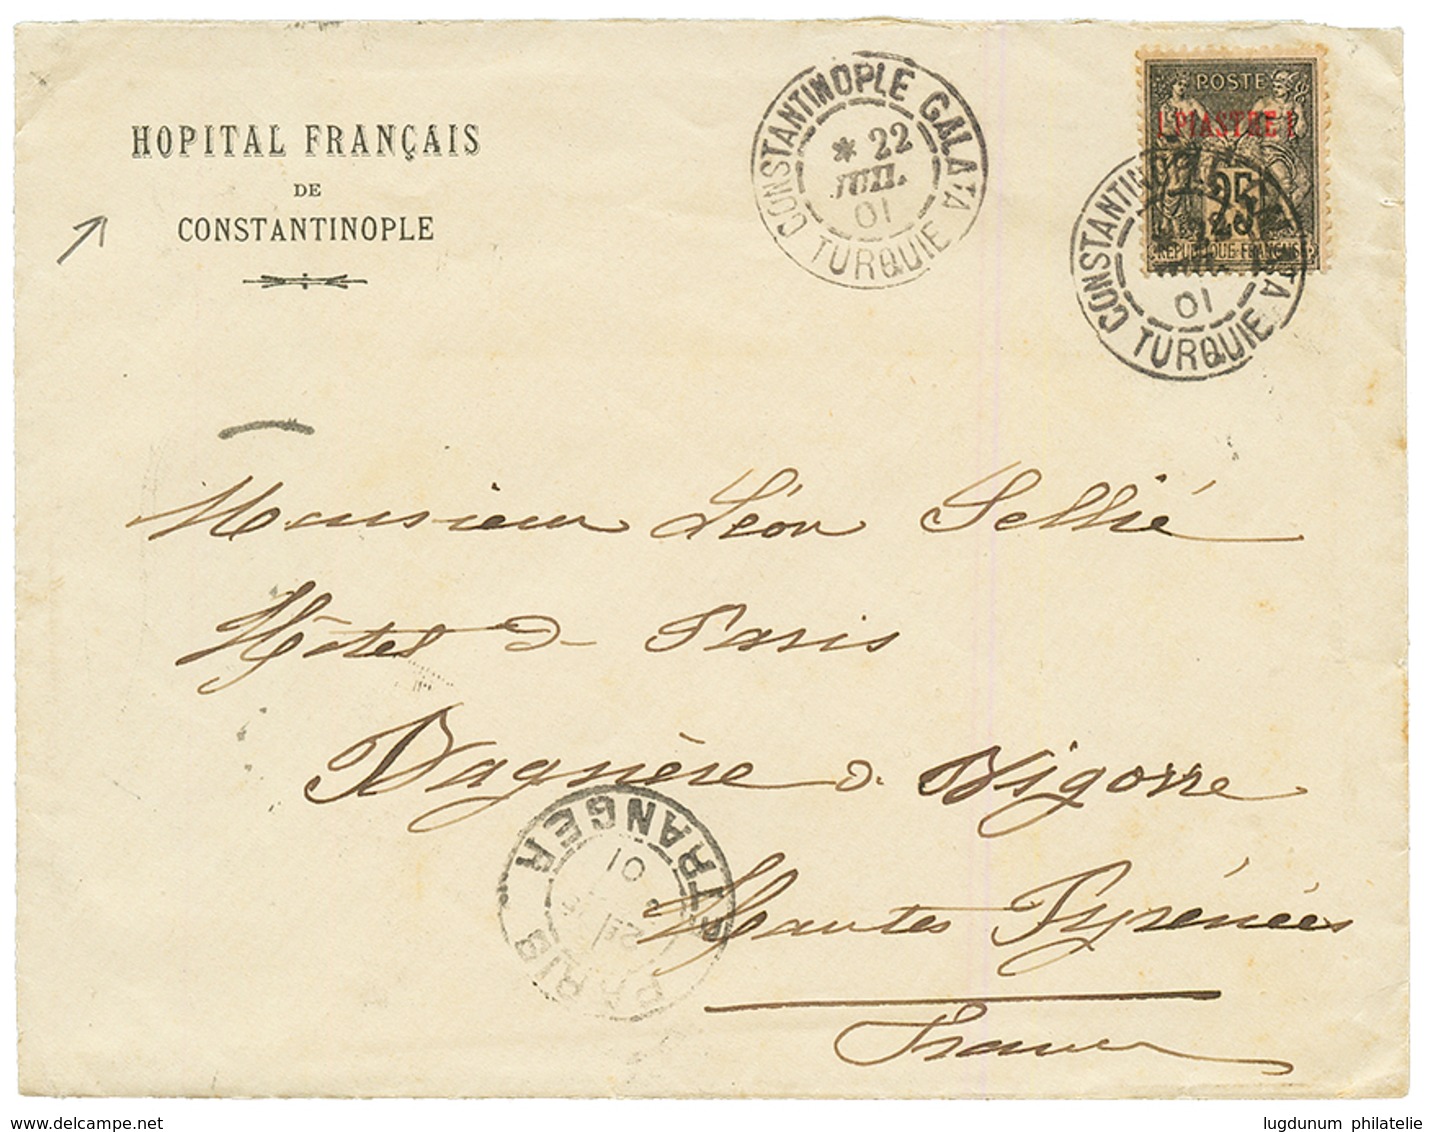 HOPITAL FRANÇAIS
DE
CONSTANTINOPLE
CONSTANTINOPLE GALATA
* 22
JUIL.
01
TURQUIE
POSTE
1 PIASTRE 1
25
REPUBLIQUE FRANÇAISE
CONSTANTINOPLE GALATA
01
TURQUIE
Monsieur Léon Sellié
Hôtel de Paris
Bagnère de Bigorre
Hautes Pyrénées
France
PARIS ETRANGER
01
www.delcampe.net
lugdunum philatelie